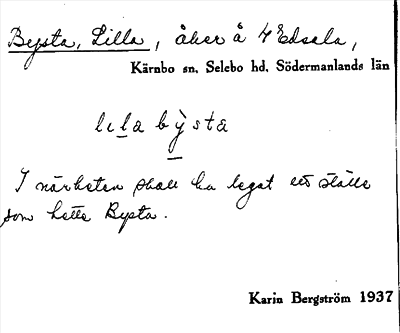 Bysta, Lilla, åker å 4 Edsala,
Kärnbo sn. Selebo hd. Södermanlands län
lila bỳsta
I närheten skall ha legat ett ställe
som hette Bysta.
Karin Bergström 1937